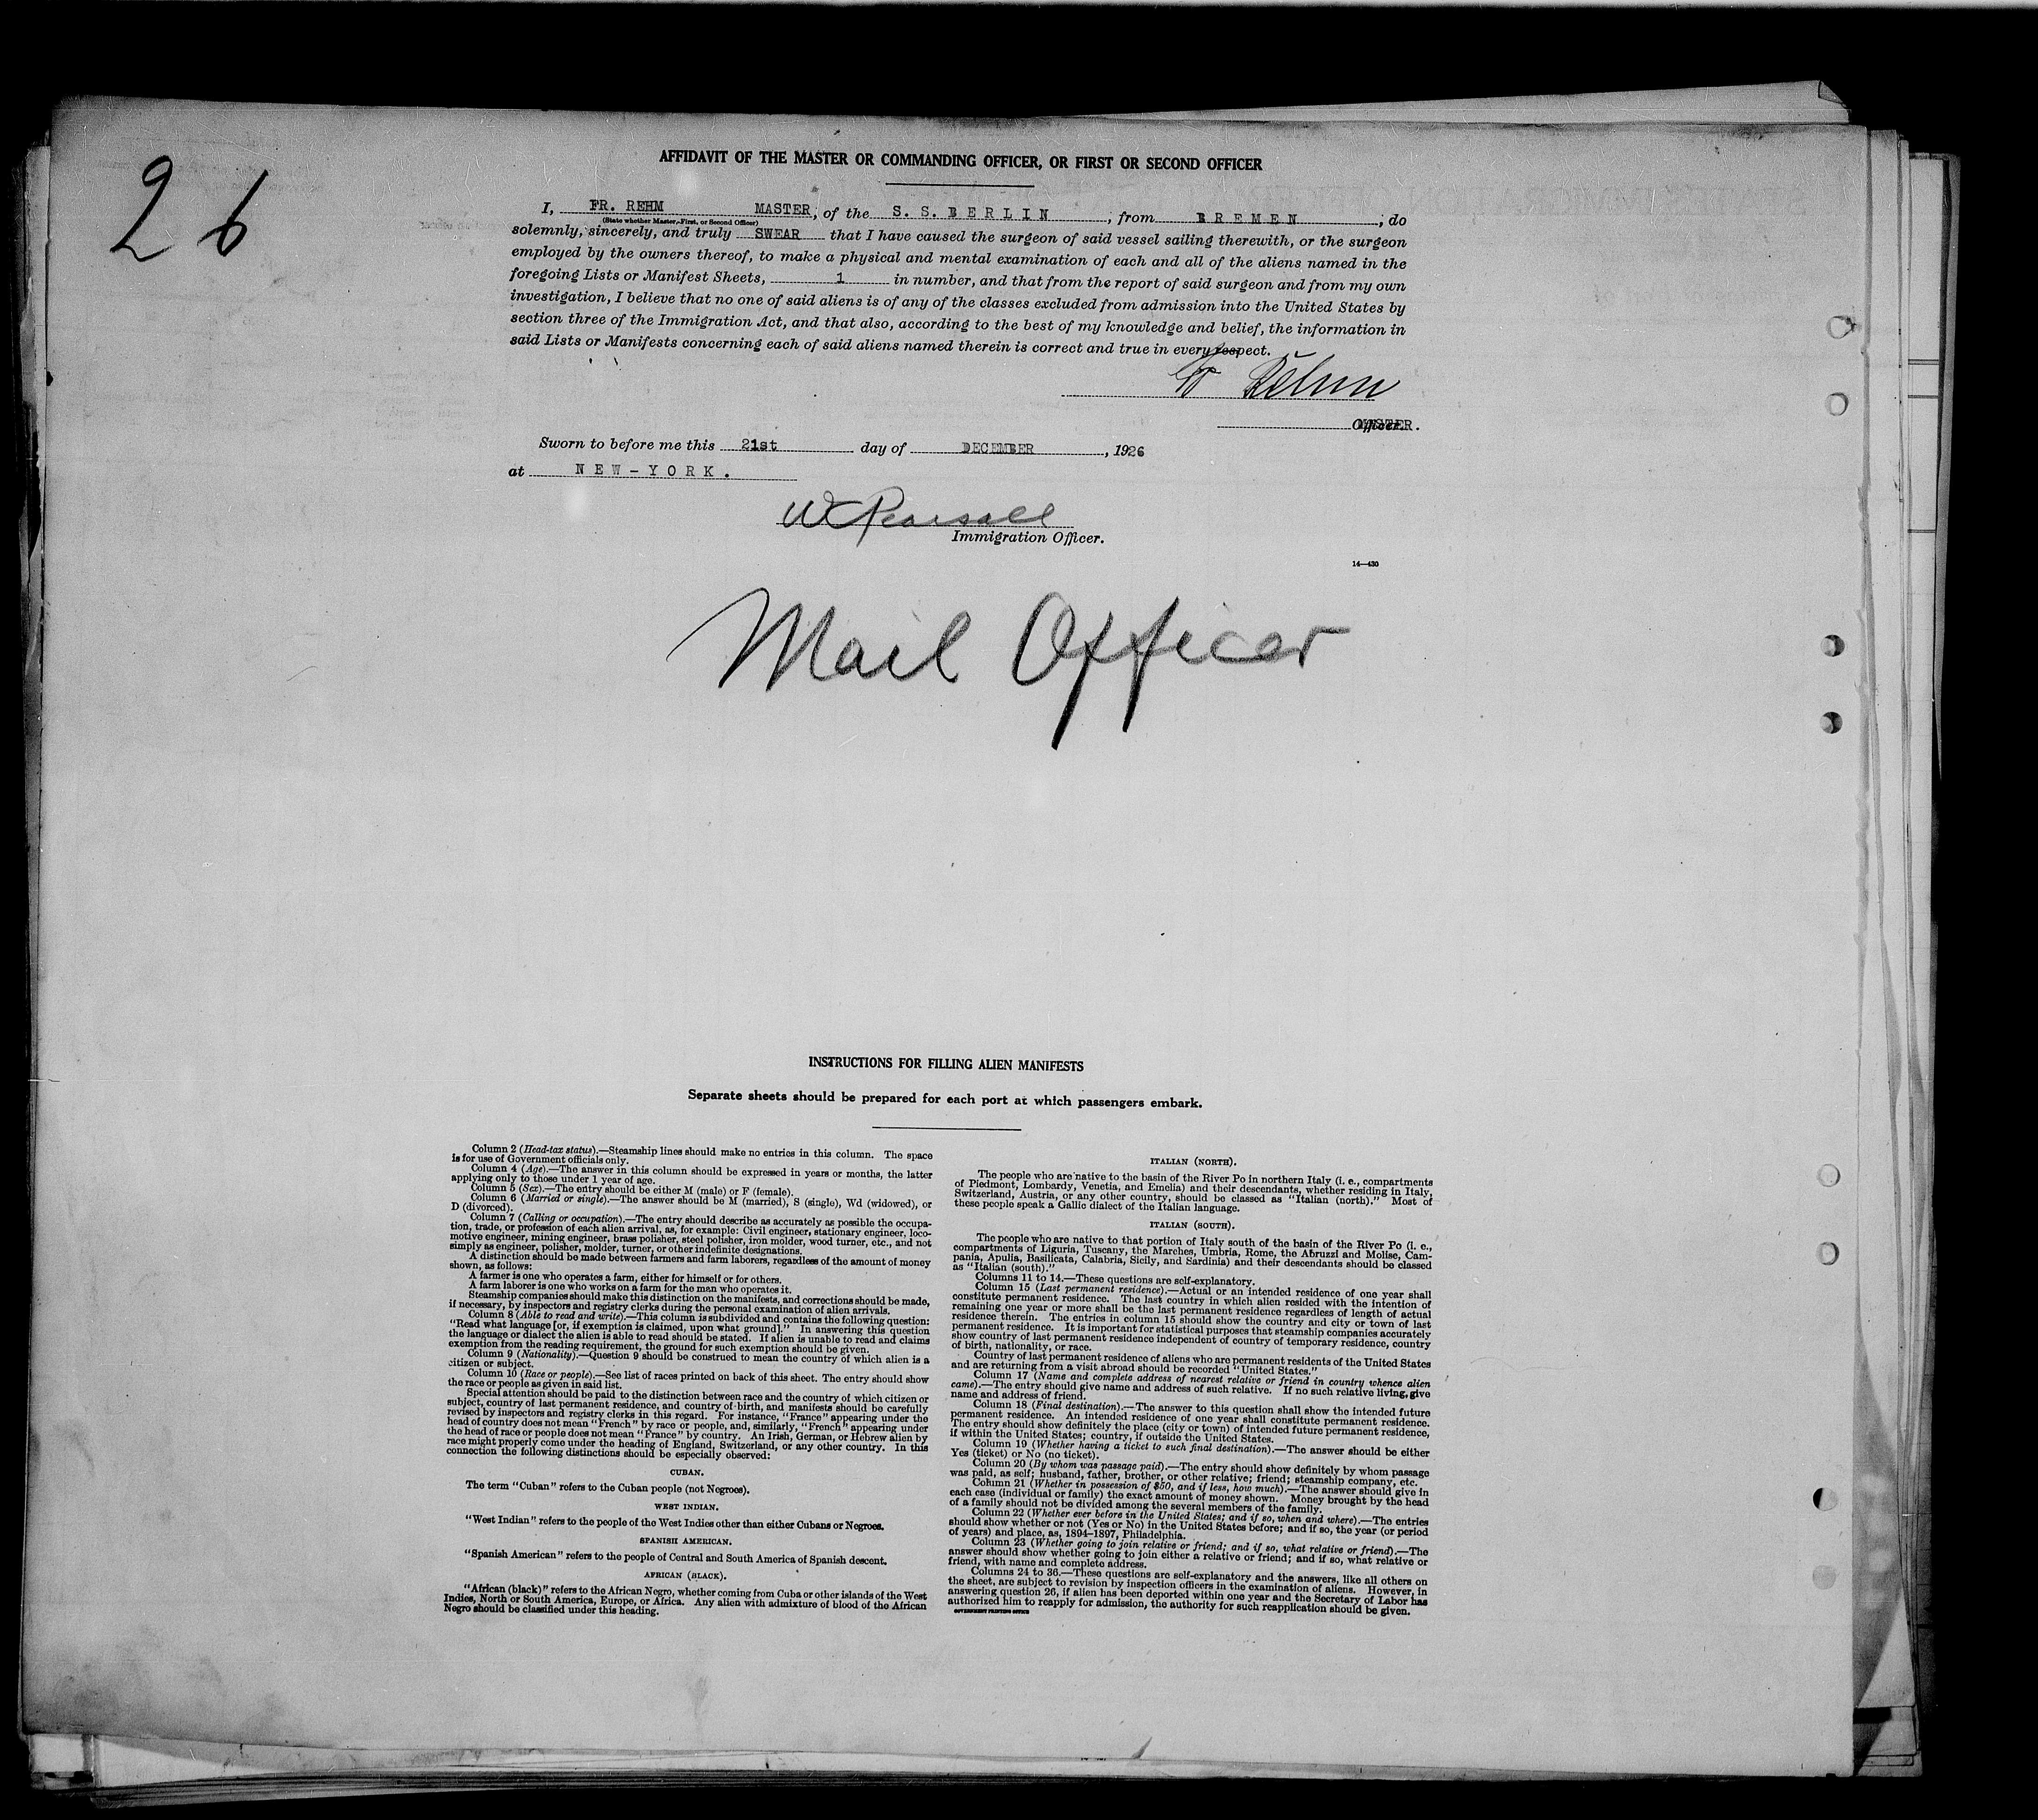 26
AFFIDAVIT OF THE MASTER OR COMMANDING OFFICER, OR FIRST OR SECOND OFFICER
I, FR. REHM MASTER, of the S. S. BERLIN, from BREMEN; do
(State whether Master, First, or Second Officer)
solemnly, sincerely, and truly SWEAR that I have caused the surgeon of said vessel sailing therewith, or the surgeon
employed by the owners thereof, to make a physical and mental examination of each and all of the aliens named in the
foregoing Lists or Manifest Sheets, 1 in number, and that from the report of said surgeon and from my own
investigation, I believe that no one of said aliens is of any of the classes excluded from admission into the United States by
section three of the Immigration Act, and that also, according to the best of my knowledge and belief, the information in
said Lists or Manifests concerning each of said aliens named therein is correct and true in every respect.
Rehm
Officer. MASTER.
Sworn to before me this 21st day of DECEMBER, 1926
at NEW-YORK.
W Pearsall
Immigration Officer.
14—430
Mail Officer
INSTRUCTIONS FOR FILLING ALIEN MANIFESTS
Separate sheets should be prepared for each port at which passengers embark.
Column 2 (Head-tax status).—Steamship lines should make no entries in this column. The space
is for use of Government officials only.
Column 4 (Age).—The answer in this column should be expressed in years or months, the latter
applying only to those under 1 year of age.
Column 5 (Sex).—The entry should be either M (male) or F (female).
Column 6 (Married or single).—The answer should be M (married), S (single), Wd (widowed), or
D (divorced).
Column 7 (Calling or occupation).—The entry should describe as accurately as possible the occupa-
tion, trade, or profession of each alien arrival, as, for example: Civil engineer, stationary engineer, loco-
motive engineer, mining engineer, brass polisher, steel polisher, iron molder, wood turner, etc., and not
simply as engineer, polisher, molder, turner, or other indefinite designations.
A distinction should be made between farmers and farm laborers, regardless of the amount of money
shown, as follows:
A farmer is one who operates a farm, either for himself or for others.
A farm laborer is one who works on a farm for the man who operates it.
Steamship companies should make this distinction on the manifests, and corrections should be made,
if necessary, by inspectors and registry clerks during the personal examination of alien arrivals.
Column 8 (Able to read and write).—This column is subdivided and contains the following question:
“Read what language [or, if exemption is claimed, upon what ground].” In answering this question
the language or dialect the alien is able to read should be stated. If alien is unable to read and claims
exemption from the reading requirement, the ground for such exemption should be given.
Column 9 (Nationality).—Question 9 should be construed to mean the country of which alien is a
citizen or subject.
Column 10 (Race or people).—See list of races printed on back of this sheet. The entry should show
the race or people as given in said list.
Special attention should be paid to the distinction between race and the country of which citizen or
subject, country of last permanent residence, and country of birth, and manifests should be carefully
revised by inspectors and registry clerks in this regard. For instance, “France” appearing under the
head of country does not mean “French” by race or people, and, similarly, “French” appearing under
the head of race or people does not mean “France” by country. An Irish, German, or Hebrew alien by
race might properly come under the heading of England, Switzerland, or any other country. In this
connection the following distinctions should be especially observed:
CUBAN.
The term “Cuban” refers to the Cuban people (not Negroes).
WEST INDIAN.
“West Indian” refers to the people of the West Indies other than either Cubans or Negroes.
SPANISH AMERICAN.
“Spanish American” refers to the people of Central and South America of Spanish descent.
AFRICAN (BLACK).
“African (black)” refers to the African Negro, whether coming from Cuba or other islands of the West
Indies, North or South America, Europe, or Africa. Any alien with admixture of blood of the African
Negro should be classified under this heading.
ITALIAN (NORTH).
The people who are native to the basin of the River Po in northern Italy (i. e., compartments
of Piedmont, Lombardy, Venetia, and Emelia) and their descendants, whether residing in Italy,
Switzerland, Austria, or any other country, should be classed as “Italian (north).” Most of
these people speak a Gallic dialect of the Italian language.
ITALIAN (SOUTH).
The people who are native to that portion of Italy south of the basin of the River Po (i. e.,
compartments of Liguria, Tuscany, the Marches, Umbria, Rome, the Abruzzi and Molise, Cam-
pania, Apulia, Basilicata, Calabria, Sicily, and Sardinia) and their descendants should be classed
as “Italian (south).”
Columns 11 to 14.—These questions are self-explanatory.
Column 15 (Last permanent residence).—Actual or an intended residence of one year shall
constitute permanent residence. The last country in which alien resided with the intention of
remaining one year or more shall be the last permanent residence regardless of length of actual
residence therein. The entries in column 15 should show the country and city or town of last
permanent residence. It is important for statistical purposes that steamship companies accurately
show country of last permanent residence independent of country of temporary residence, country
of birth, nationality, or race.
Country of last permanent residence of aliens who are permanent residents of the United States
and are returning from a visit abroad should be recorded “United States.”
Column 17 (Name and complete address of nearest relative or friend in country whence alien
came).—The entry should give name and address of such relative. If no such relative living, give
name and address of friend.
Column 18 (Final destination).—The answer to this question shall show the intended future
permanent residence. An intended residence of one year shall constitute permanent residence.
The entry should show definitely the place (city or town) of intended future permanent residence,
if within the United States; country, if outside the United States.
Column 19 (Whether having a ticket to such final destination).—The answer should be either
Yes (ticket) or No (no ticket).
Column 20 (By whom was passage paid).—The entry should show definitely by whom passage
was paid, as self; husband, father, brother, or other relative; friend; steamship company, etc.
Column 21 (Whether in possession of $50, and if less, how much).—The answer should give in
each case (individual or family) the exact amount of money shown. Money brought by the head
of a family should not be divided among the several members of the family.
Column 22 (Whether ever before in the United States; and if so, when and where).—The entries
should show whether or not (Yes or No) in the United States before; and if so, the year (or period
of years) and place, as, 1894–1897, Philadelphia.
Column 23 (Whether going to join relative or friend; and if so, what relative or friend).—The
answer should show whether going to join either a relative or friend; and if so, what relative or
friend, with name and complete address.
Columns 24 to 36.—These questions are self-explanatory and the answers, like all others on
the sheet, are subject to revision by inspection officers in the examination of aliens. However, in
answering question 26, if alien has been deported within one year and the Secretary of Labor has
authorized him to reapply for admission, the authority for such reapplication should be given.
GOVERNMENT PRINTING OFFICE